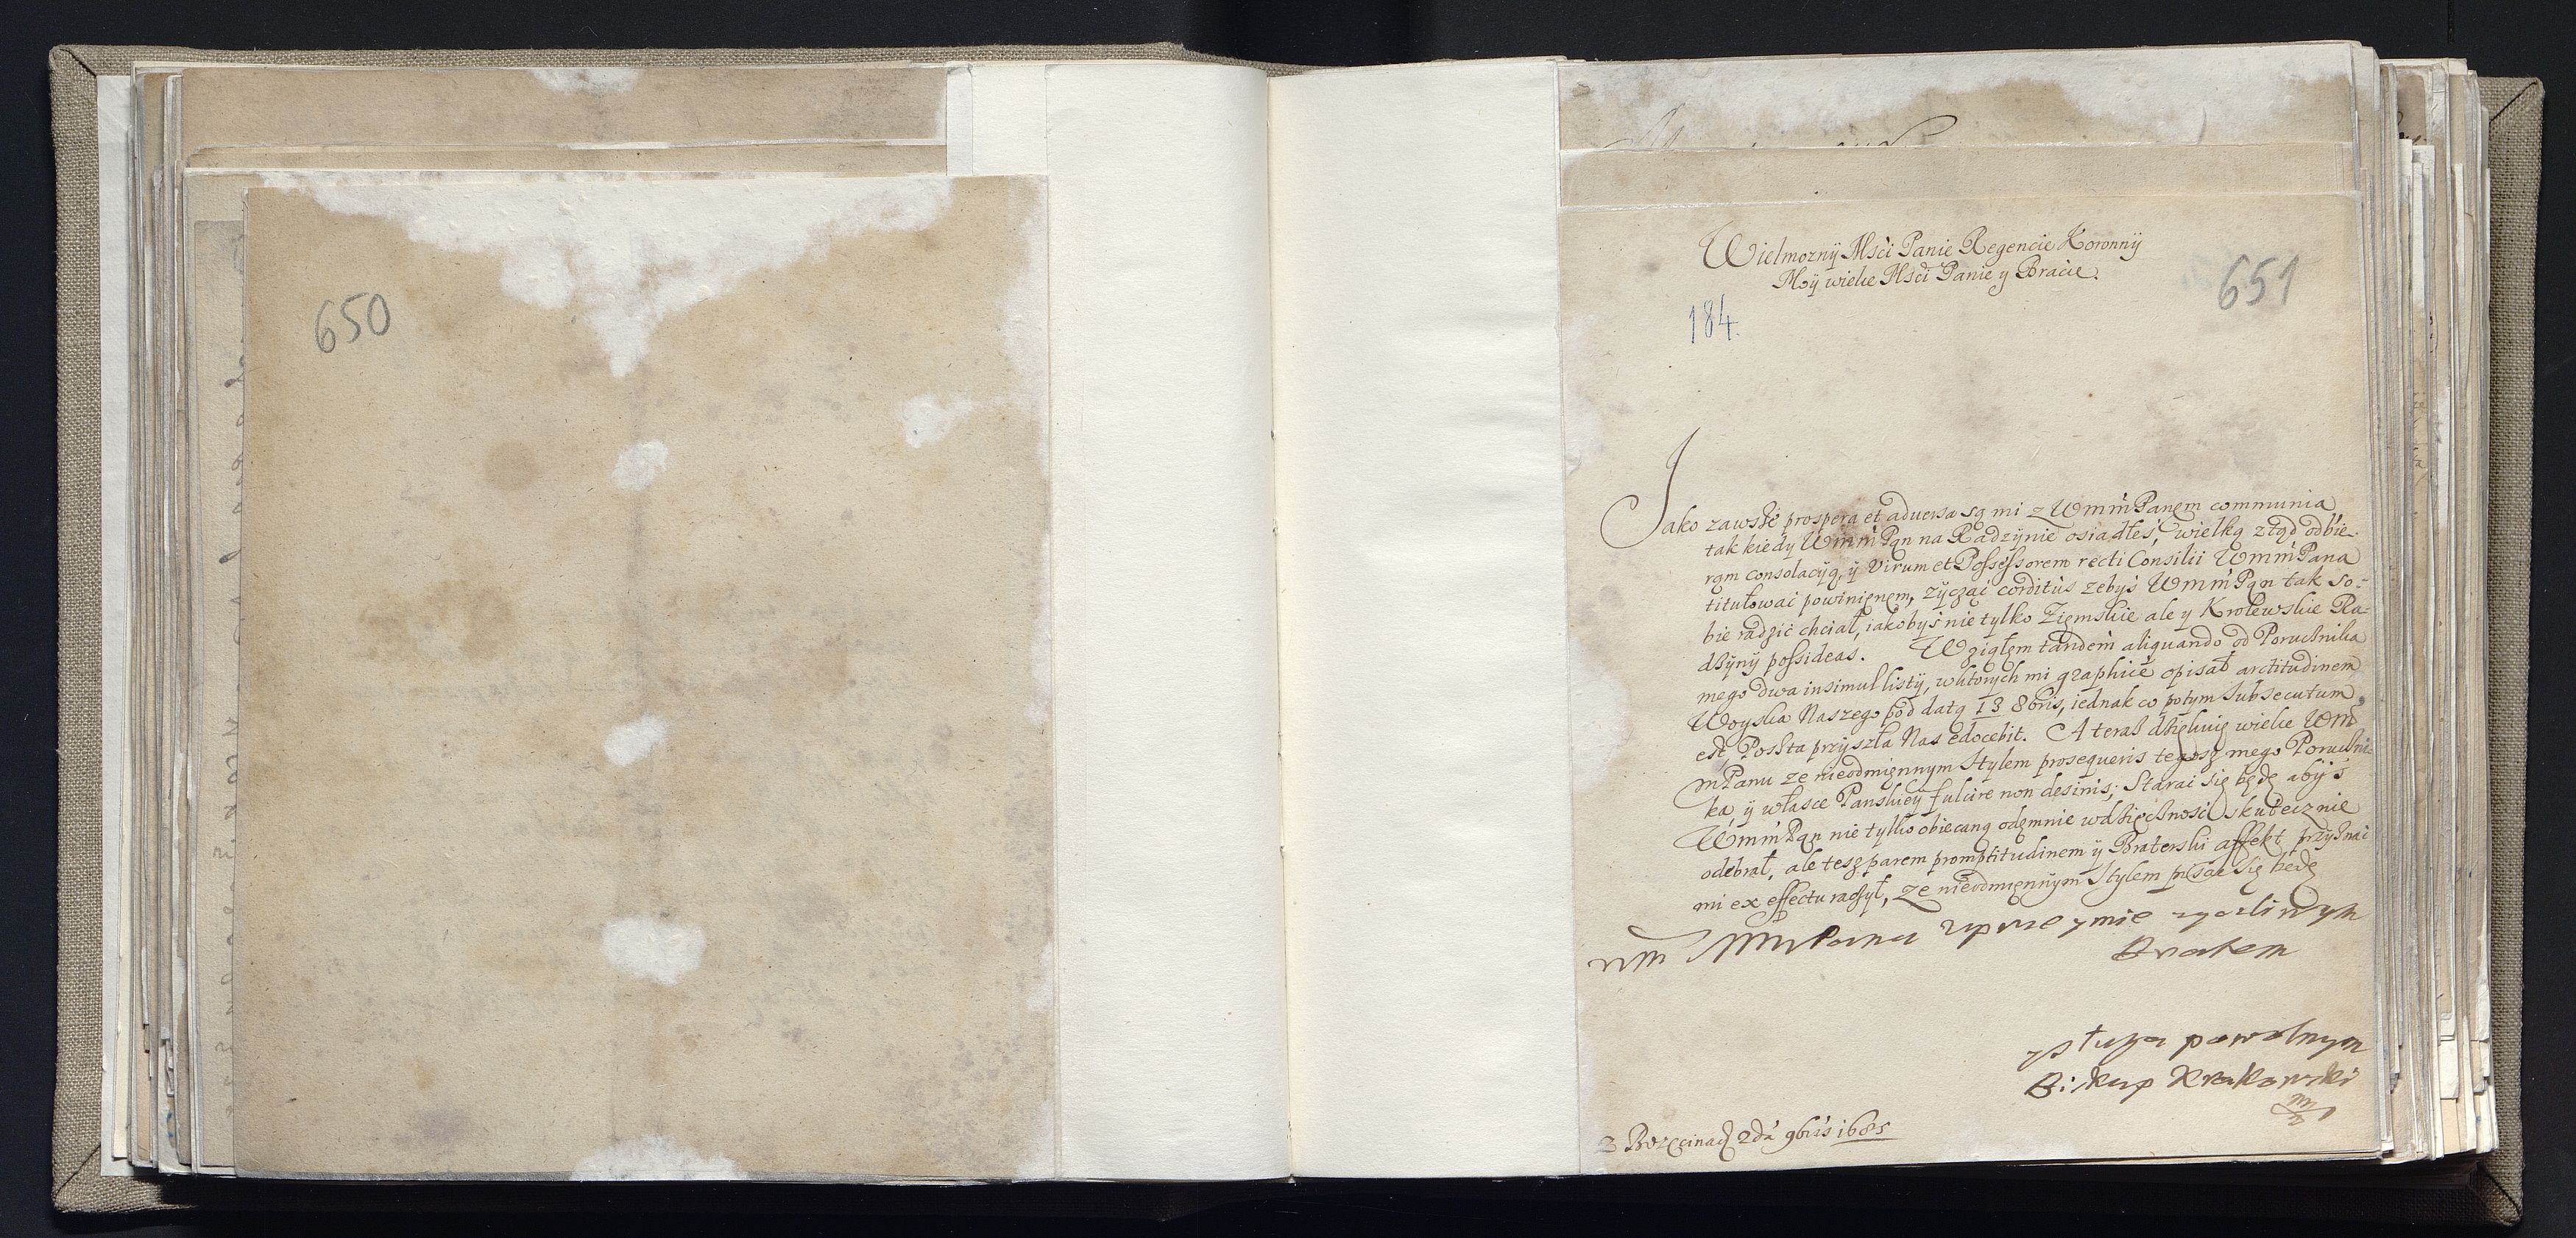 650
651
184.
Wielmożnÿ Msći Panie Regencie Koronnÿ
Moÿ wielce Msći Panie y Bracie.
Jako zawsze prospera et adversa są mi z WmmPanem communia
tak kiedy WmmPan na Radzÿnie osiadłes, wielką ztąd odbie-
ram consolacÿą, ÿ Virum et Possessorem recti Consilii WmmPana
titułować powinienem, życząc corditùs zebyś WmmPan tak so-
bie radzić chciał, iakobyś nie tylko Ziemskie ale y Krolewskie Ra-
dzÿnÿ possideas. Wziąłem tandem aliquando od Porucznika
mego dwa insimul listÿ, w ktorych mi graphicè opisał arctitudinem
Woyska Naszego pod datą 13 8bris, iednak co potym subsecutum
est, Poszta przyszła Nas edocebit. A teraz dziękuię wielce Wm
mPanu ze nieodmiennym stylem prosequeris tegosz mego Poruczni-
ka, ÿ w łasce Panskiey fulcire non desinis; Starać się będę abÿś
WmmPan nie tylko obiecaną odemnie wdzięczność skutecznie
odebrał, ale tesz parem promptitudinem ÿ Braterski affekt przyznać
mi ex effectu raczył, ze nieodmiennym stylem pisać się będę
Wm MmPana uprzeymie zyczliwym
Bratem
y sługa powolnym
Biskup Krakowski
mp
Z Borzęcina d 2da 9bris 1685